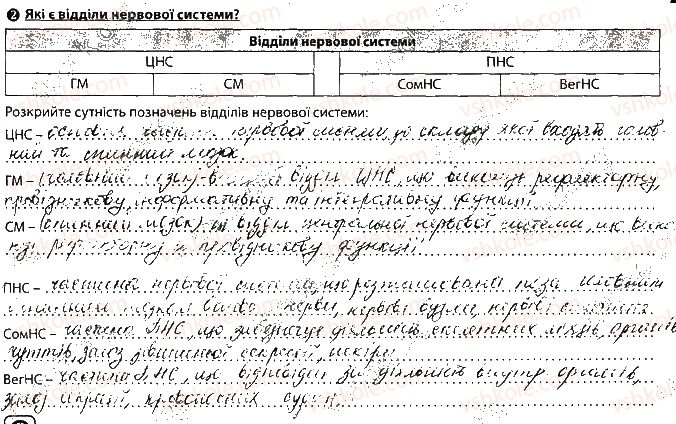 2 Які є відділи нервової системи?
Відділи нервової системи
ЦНС ПНС
ГМ СМ СомНС ВегНС
Розкрийте сутність позначень відділів нервової системи:
ЦНС – основна нервової системи, до складу якої входять голов-
ний та спинний мозок.
ГМ – (головний мозок) відділ ЦНС, що виконує рефлекторну,
провідникову, інформативну та інтегративну функції
СМ – (спинний мозок) відділ центральної нервової системи, що вико-
нує рефлекторну й провідникову функції
ПНС – частина нервової системи, що розташована поза головним
і спинним мозком нерви, нервові вузли, нервові
СомНС – частина ПНС, що забезпечує діяльність скелетних мязів, органів
чуттів, залоз зовнішньої секреції, шкіри
ВегНС – частина ПНС, що відповідає за діяльність внутр. органів,
залоз судин.
vshkole.com